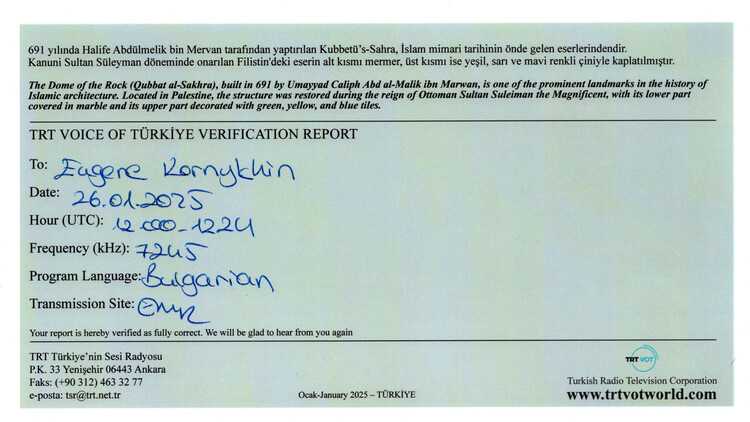 691 yılında Halife Abdülmelik bin Mervan tarafından yaptırılan Kubbetü's-Sahra, İslam mimari tarihinin önde gelen eserlerindendir.
Kanuni Sultan Süleyman döneminde onarılan Filistin'deki eserin alt kısmı mermer, üst kısmı ise yeşil, sarı ve mavi renkli çiniyle kaplatılmıştır.
The Dome of the Rock (Qubbat al-Sakhra), built in 691 by Umayyad Caliph Abd al-Malik ibn Marwan, is one of the prominent landmarks in the history of
Islamic architecture. Located in Palestine, the structure was restored during the reign of Ottoman Sultan Suleiman the Magnificent, with its lower part
covered in marble and its upper part decorated with green, yellow, and blue tiles.
TRT VOICE OF TÜRKİYE VERIFICATION REPORT
To: Eugene Kornykhin
Date: 26.01.2025
Hour (UTC): 12.00-1224
Frequency (kHz): 7245
Program Language: Bulgarian
Transmission Site: EMR
Your report is hereby verified as fully correct. We will be glad to hear from you again
TRT Türkiye'nin Sesi Radyosu
P.K. 33 Yenişehir 06443 Ankara
Faks: (+90 312) 463 32 77
e-posta: tsr@trt.net.tr
Ocak-January 2025 – TÜRKİYE
TRT VOT
Turkish Radio Television Corporation
www.trtvotworld.com